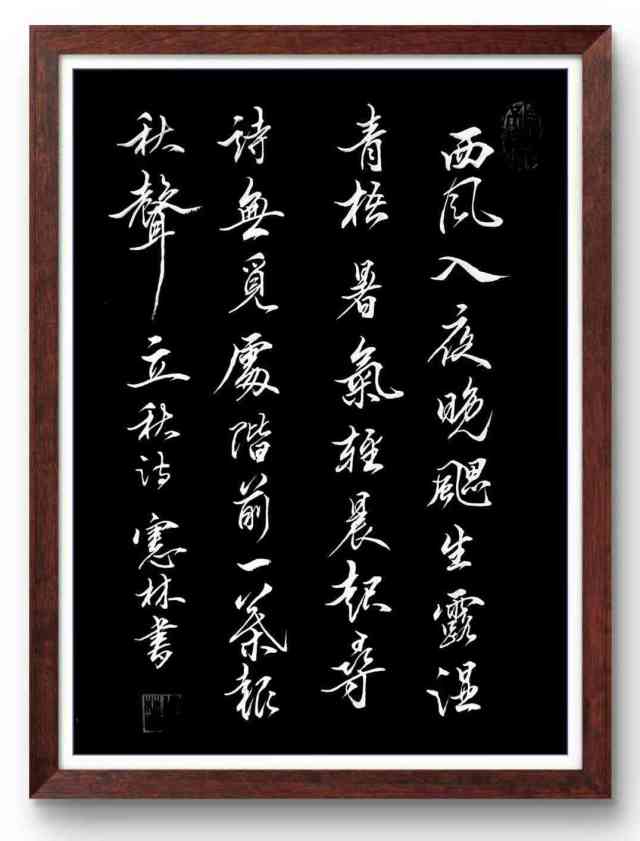 西风入夜晚飔生露湿
青梧暑氣輕晨起尋
詩無覓處階前一葉報
秋聲 立秋诗 憲林書